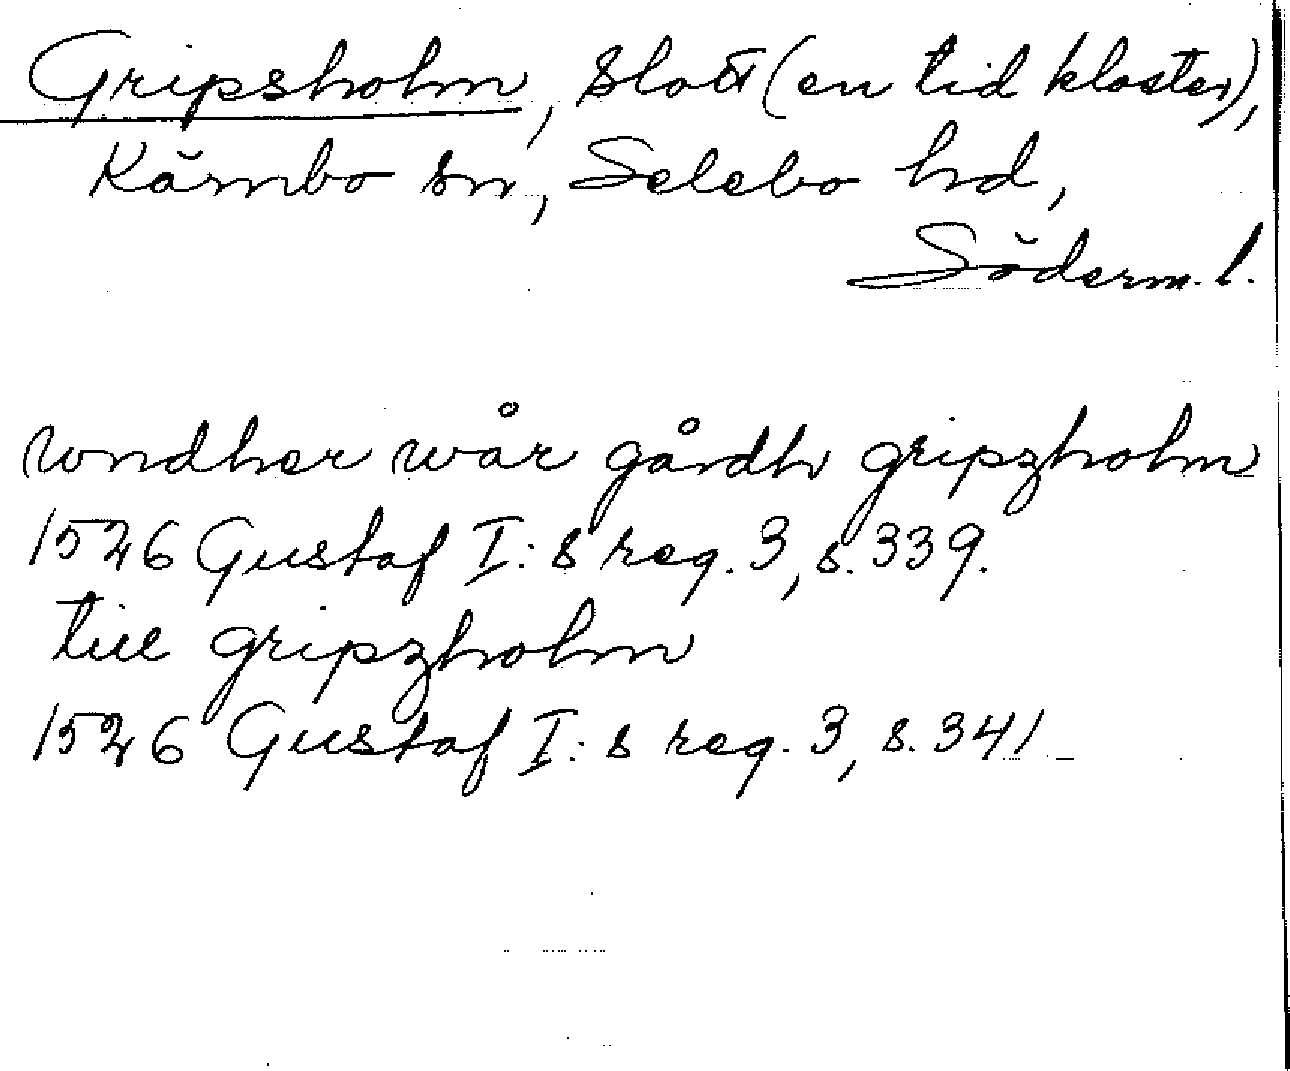 Gripsholm, slott (en tid kloster),
Kärnbo sn, Selebo hd,
Söderm. l.
wndher wår gårdh gripzholm
1526 Gustaf I:s reg. 3, s. 339.
till gripzholm
1526 Gustaf I:s reg. 3, s. 341